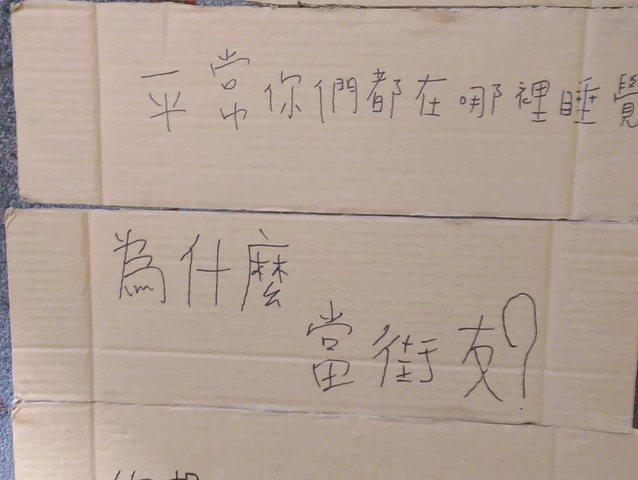 平常你們都在哪裡睡覺
為什麼
當街友?